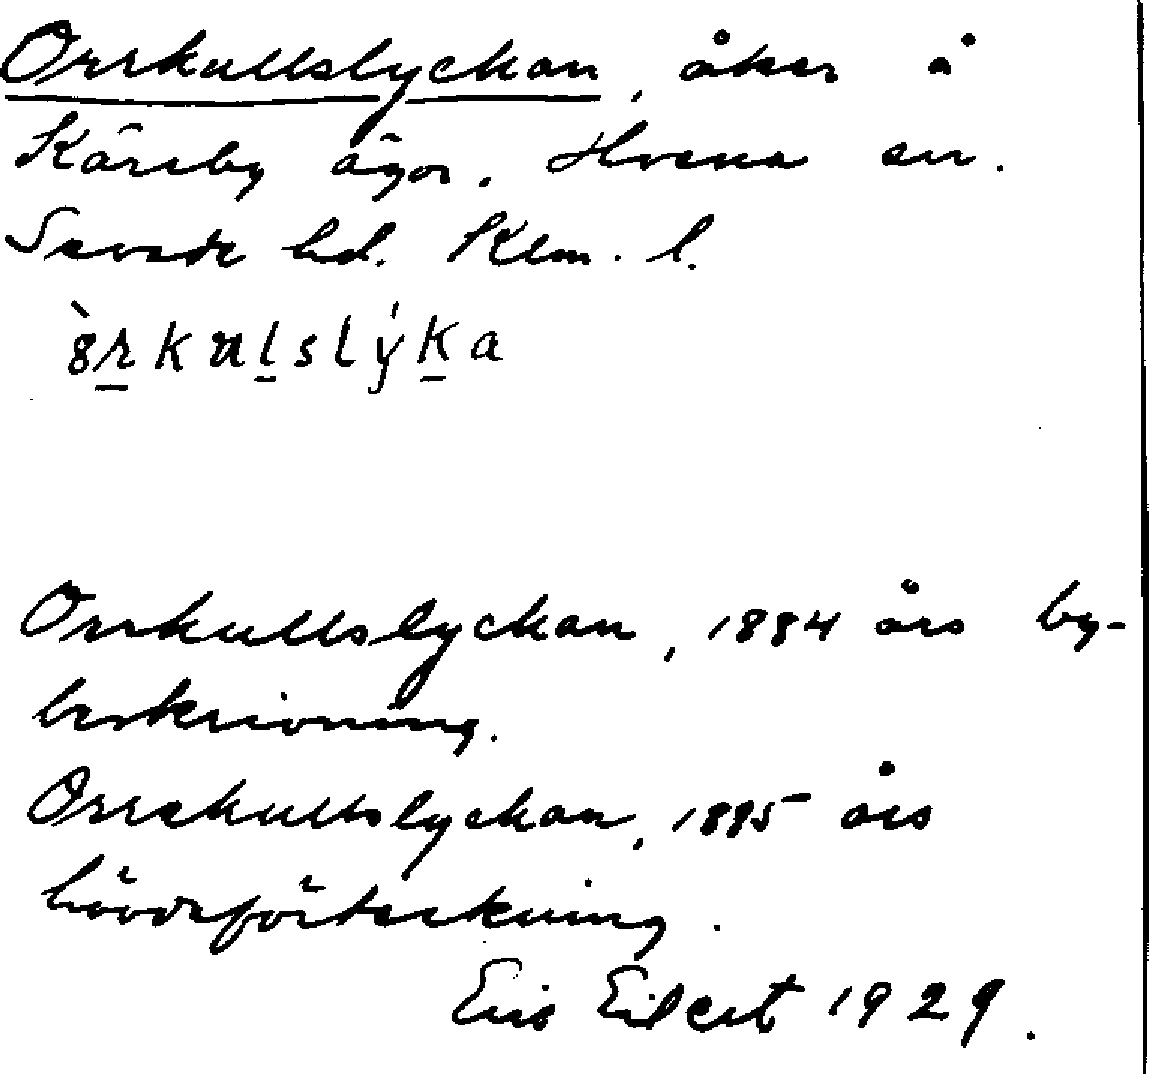 Orrkullslyckan, åker å
Kärrby ägor. Hvena sn.
Sevede hd. Klm. l.
Orrkullslyckan, 1884 års by-
beskrivning.
Orrekullslyckan, 1885 års
hävdeförteckning.
Eilert 1929.